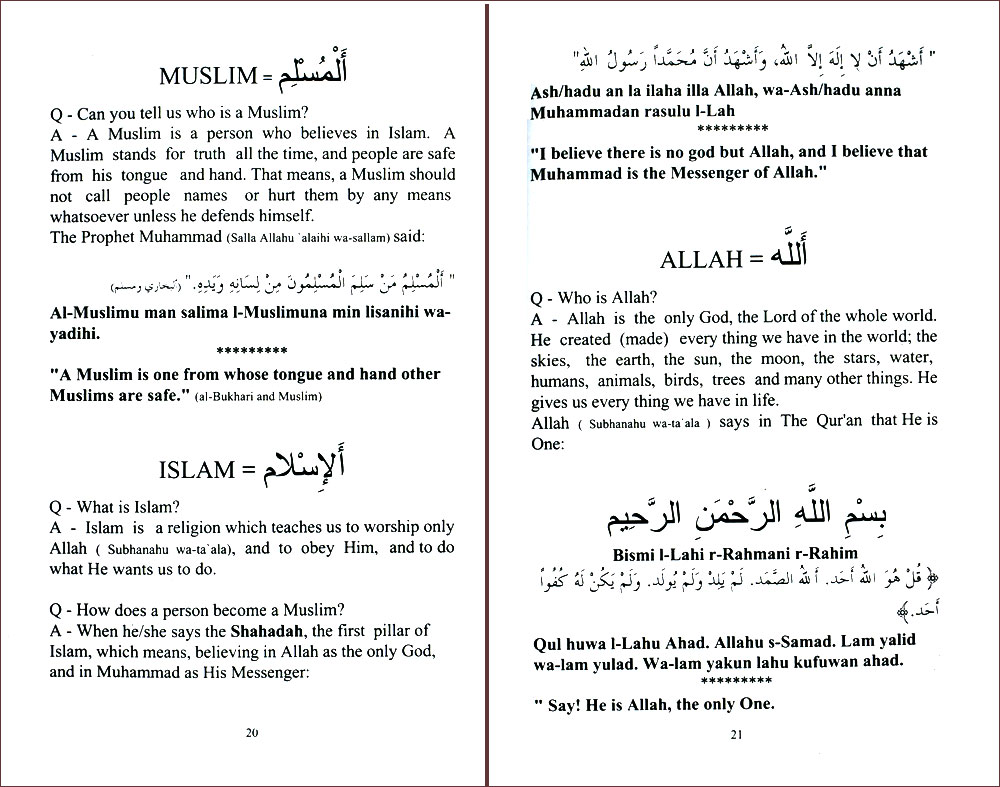 MUSLIM = أَلْمُسْلِم
Q - Can you tell us who is a Muslim?
A - A Muslim is a person who believes in Islam. A
Muslim stands for truth all the time, and people are safe
from his tongue and hand. That means, a Muslim should
not call people names or hurt them by any means
whatsoever unless he defends himself.
The Prophet Muhammad (Salla Allahu `alaihi wa-sallam) said:
" أَلْمُسْلِمُ مَنْ سَلِمَ الْمُسْلِمُونَ مِنْ لِسَانِهِ وَيَدِهِ. " (البخاري ومسلم)
Al-Muslimu man salima l-Muslimuna min lisanihi wa-
yadihi.
*********
"A Muslim is one from whose tongue and hand other
Muslims are safe." (al-Bukhari and Muslim)
ISLAM = أَلإِسْلام
Q - What is Islam?
A - Islam is a religion which teaches us to worship only
Allah ( Subhanahu wa-ta`ala), and to obey Him, and to do
what He wants us to do.
Q - How does a person become a Muslim?
A - When he/she says the Shahadah, the first pillar of
Islam, which means, believing in Allah as the only God,
and in Muhammad as His Messenger:
20
" أَشْهَدُ أَنْ لا إِلَهَ إِلاَّ اللهُ، وَأَشْهَدُ أَنَّ مُحَمَّداً رَسُولُ اللهِ"
Ash/hadu an la ilaha illa Allah, wa-Ash/hadu anna
Muhammadan rasulu l-Lah
*********
"I believe there is no god but Allah, and I believe that
Muhammad is the Messenger of Allah."
ALLAH = أَللَّه
Q - Who is Allah?
A - Allah is the only God, the Lord of the whole world.
He created (made) every thing we have in the world; the
skies, the earth, the sun, the moon, the stars, water,
humans, animals, birds, trees and many other things. He
gives us every thing we have in life.
Allah ( Subhanahu wa-ta`ala ) says in The Qur'an that He is
One:
بِسْمِ اللَّهِ الرَّحْمَنِ الرَّحِيم
Bismi l-Lahi r-Rahmani r-Rahim
﴿ قُلْ هُوَ اللهُ أَحَد. أَللهُ الصَّمَد. لَمْ يَلِدْ وَلَمْ يُولَد. وَلَمْ يَكُنْ لَهُ كُفُواً
أَحَد.﴾
Qul huwa l-Lahu Ahad. Allahu s-Samad. Lam yalid
wa-lam yulad. Wa-lam yakun lahu kufuwan ahad.
*********
" Say! He is Allah, the only One.
21